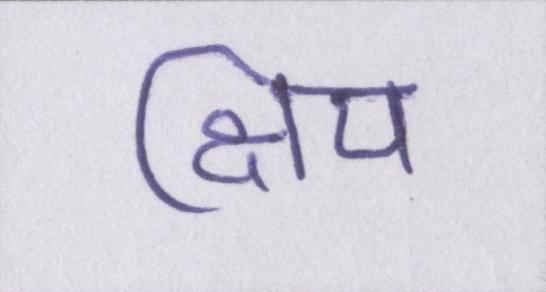 क्षिप